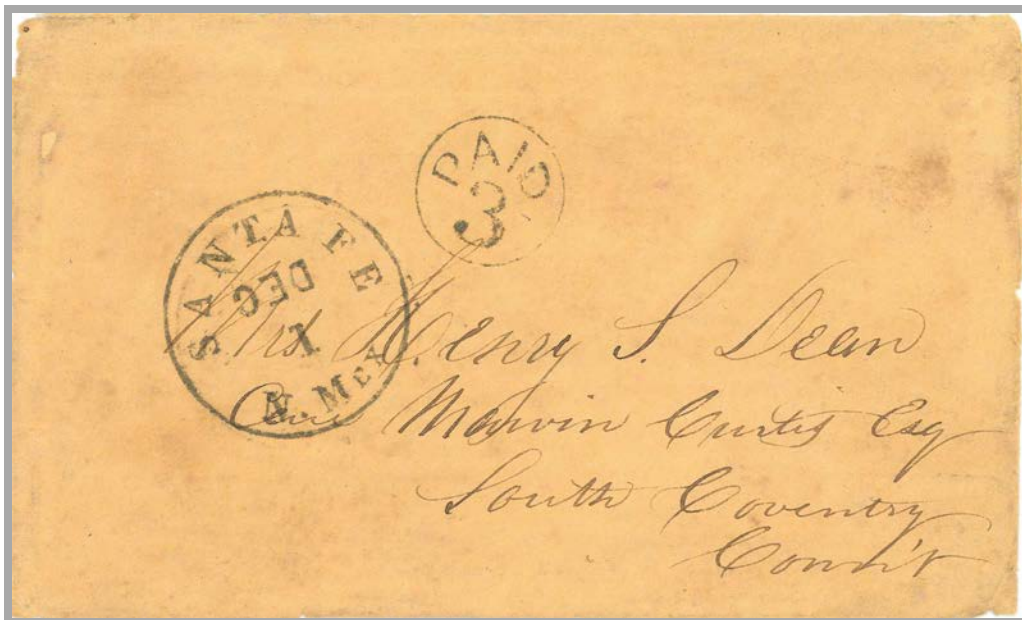 PAID
3
SANTA FE
DEC
1
N. MEX
Mrs. Henry S. Dean
Care Marvin Curtis Esq
South Coventry
Conn't